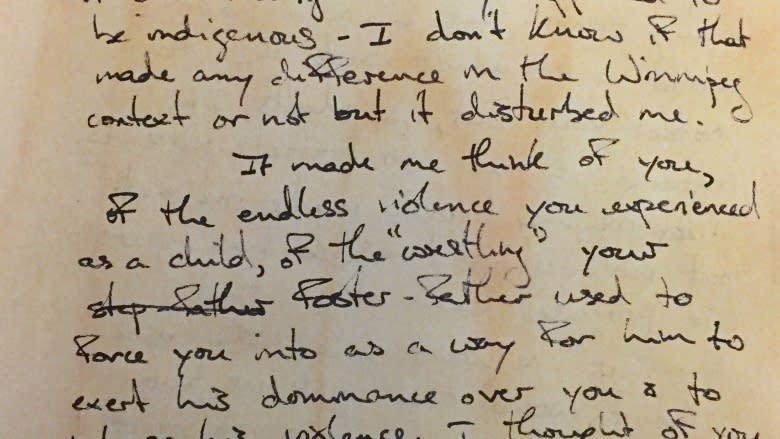 to
be indigenous - I don't know if that
made any difference in the Winnipeg
context or not but it disturbed me.
It made me think of you,
of the endless violence you experienced
as a child, of the "wrestling" your
step-father foster-father used to
force you into as a way for him to
exert his dominance over you & to
his violence. I thought of you